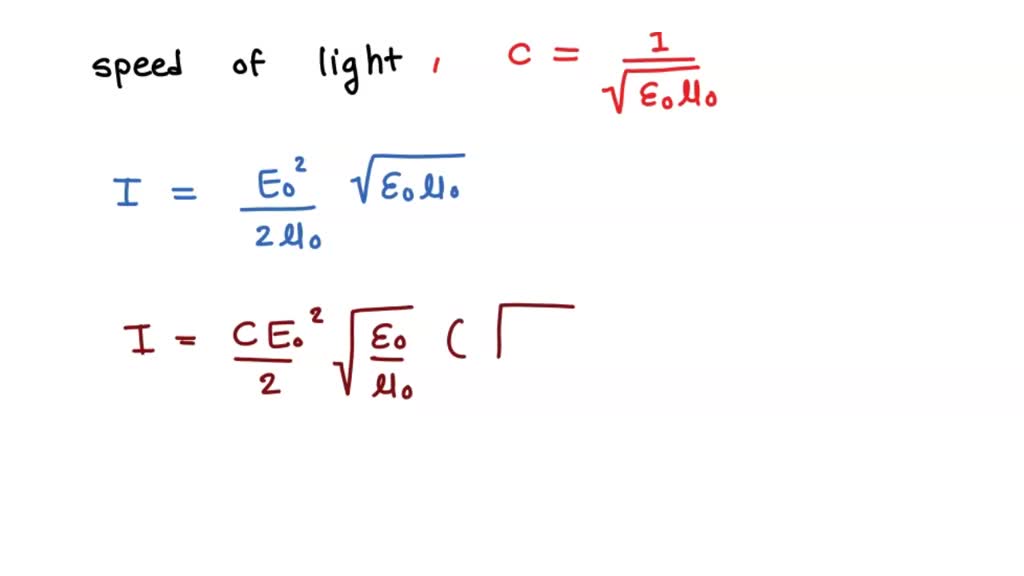 speed of light, C = 1/√(ε₀μ₀)
I = E₀²/2μ₀ √(ε₀μ₀)
I = CE₀²/2 √(ε₀/μ₀) ( √